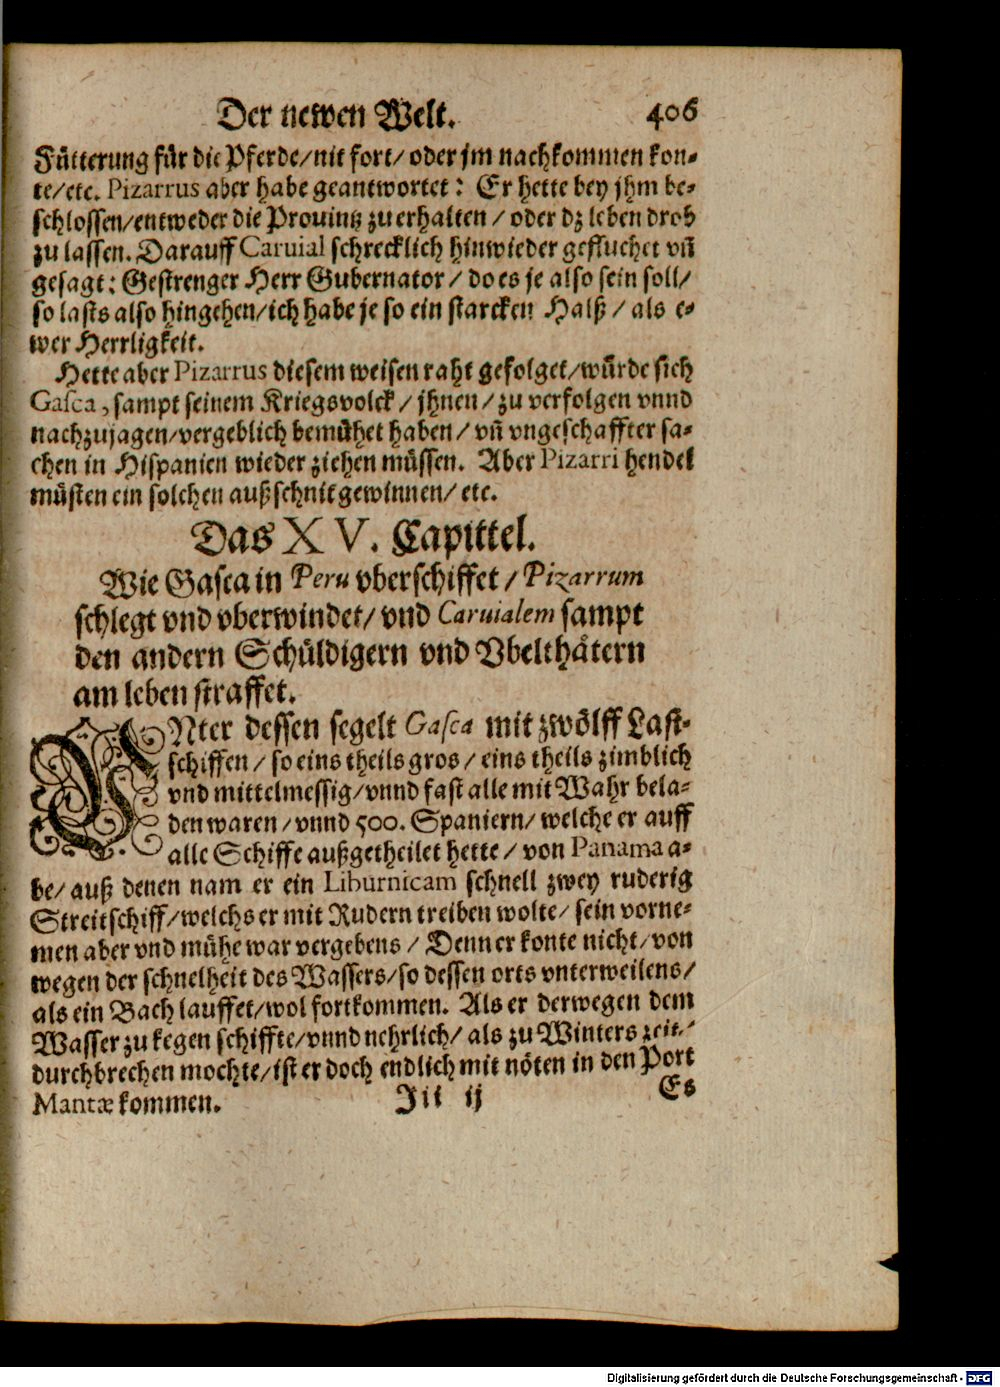 Der newen Welt. 406
Fütterung für die Pferde/nit fort/ oder jm nachkommen kon-
te/etc. Pizarrus aber habe geantwortet: Er hette bey jhm be-
schlossen/entweder die Prouintz zu erhalten / oder dz leben drob
zu lassen. Darauff Caruial schrecklich hinwieder gefluchet vñ
gesagt: Gestrenger Herr Gubernator / do es je also sein soll/
so lasts also hingehen/ich habe je so ein starcken Halß / als e-
wer Herrligkeit.
Hette aber Pizarrus diesem weisen raht gefolget/würde sich
Gasca, sampt seinem Kriegsvolck / jhnen / zu verfolgen vnnd
nachzujagen/vergeblich bemühet haben / vñ vngeschaffter sa-
chen in Hispanien wieder ziehen müssen. Aber Pizarri hendel
müsten ein solchen außschnit gewinnen/ etc.
Das XV. Capittel.
Wie Gasca in Peru vberschiffet / Pizarrum
schlegt vnd vberwindet/ vnd Caruialem sampt
den andern Schüldigern vnd Vbelthätern
am leben straffet.
VNter dessen segelt Gasca mit zwölff Last-
schiffen / so eins theils gros / eins theils zimblich
vnd mittelmessig/vnnd fast alle mit Wahr bela-
den waren /vnnd 500. Spaniern/ welche er auff
alle Schiffe außgetheilet hette / von Panama a-
be/ auß denen nam er ein Liburnicam schnell zwey ruderig
Streitschiff/welchs er mit Rudern treiben wolte/ sein vorne-
men aber vnd mühe war vergebens / Denn er konte nicht/von
wegen der schnelheit des Wassers/so dessen orts vnterweilens/
als ein Bach lauffet/wol fortkommen. Als er derwegen dem
Wasser zu kegen schiffte/vnnd nehrlich/ als zu Winters zeit/
durchbrechen mochte/ist er doch endlich mit nöten in den Port
Mantæ kommen. Jii ij Es
Digitalisierung gefördert durch die Deutsche Forschungsgemeinschaft - DFG